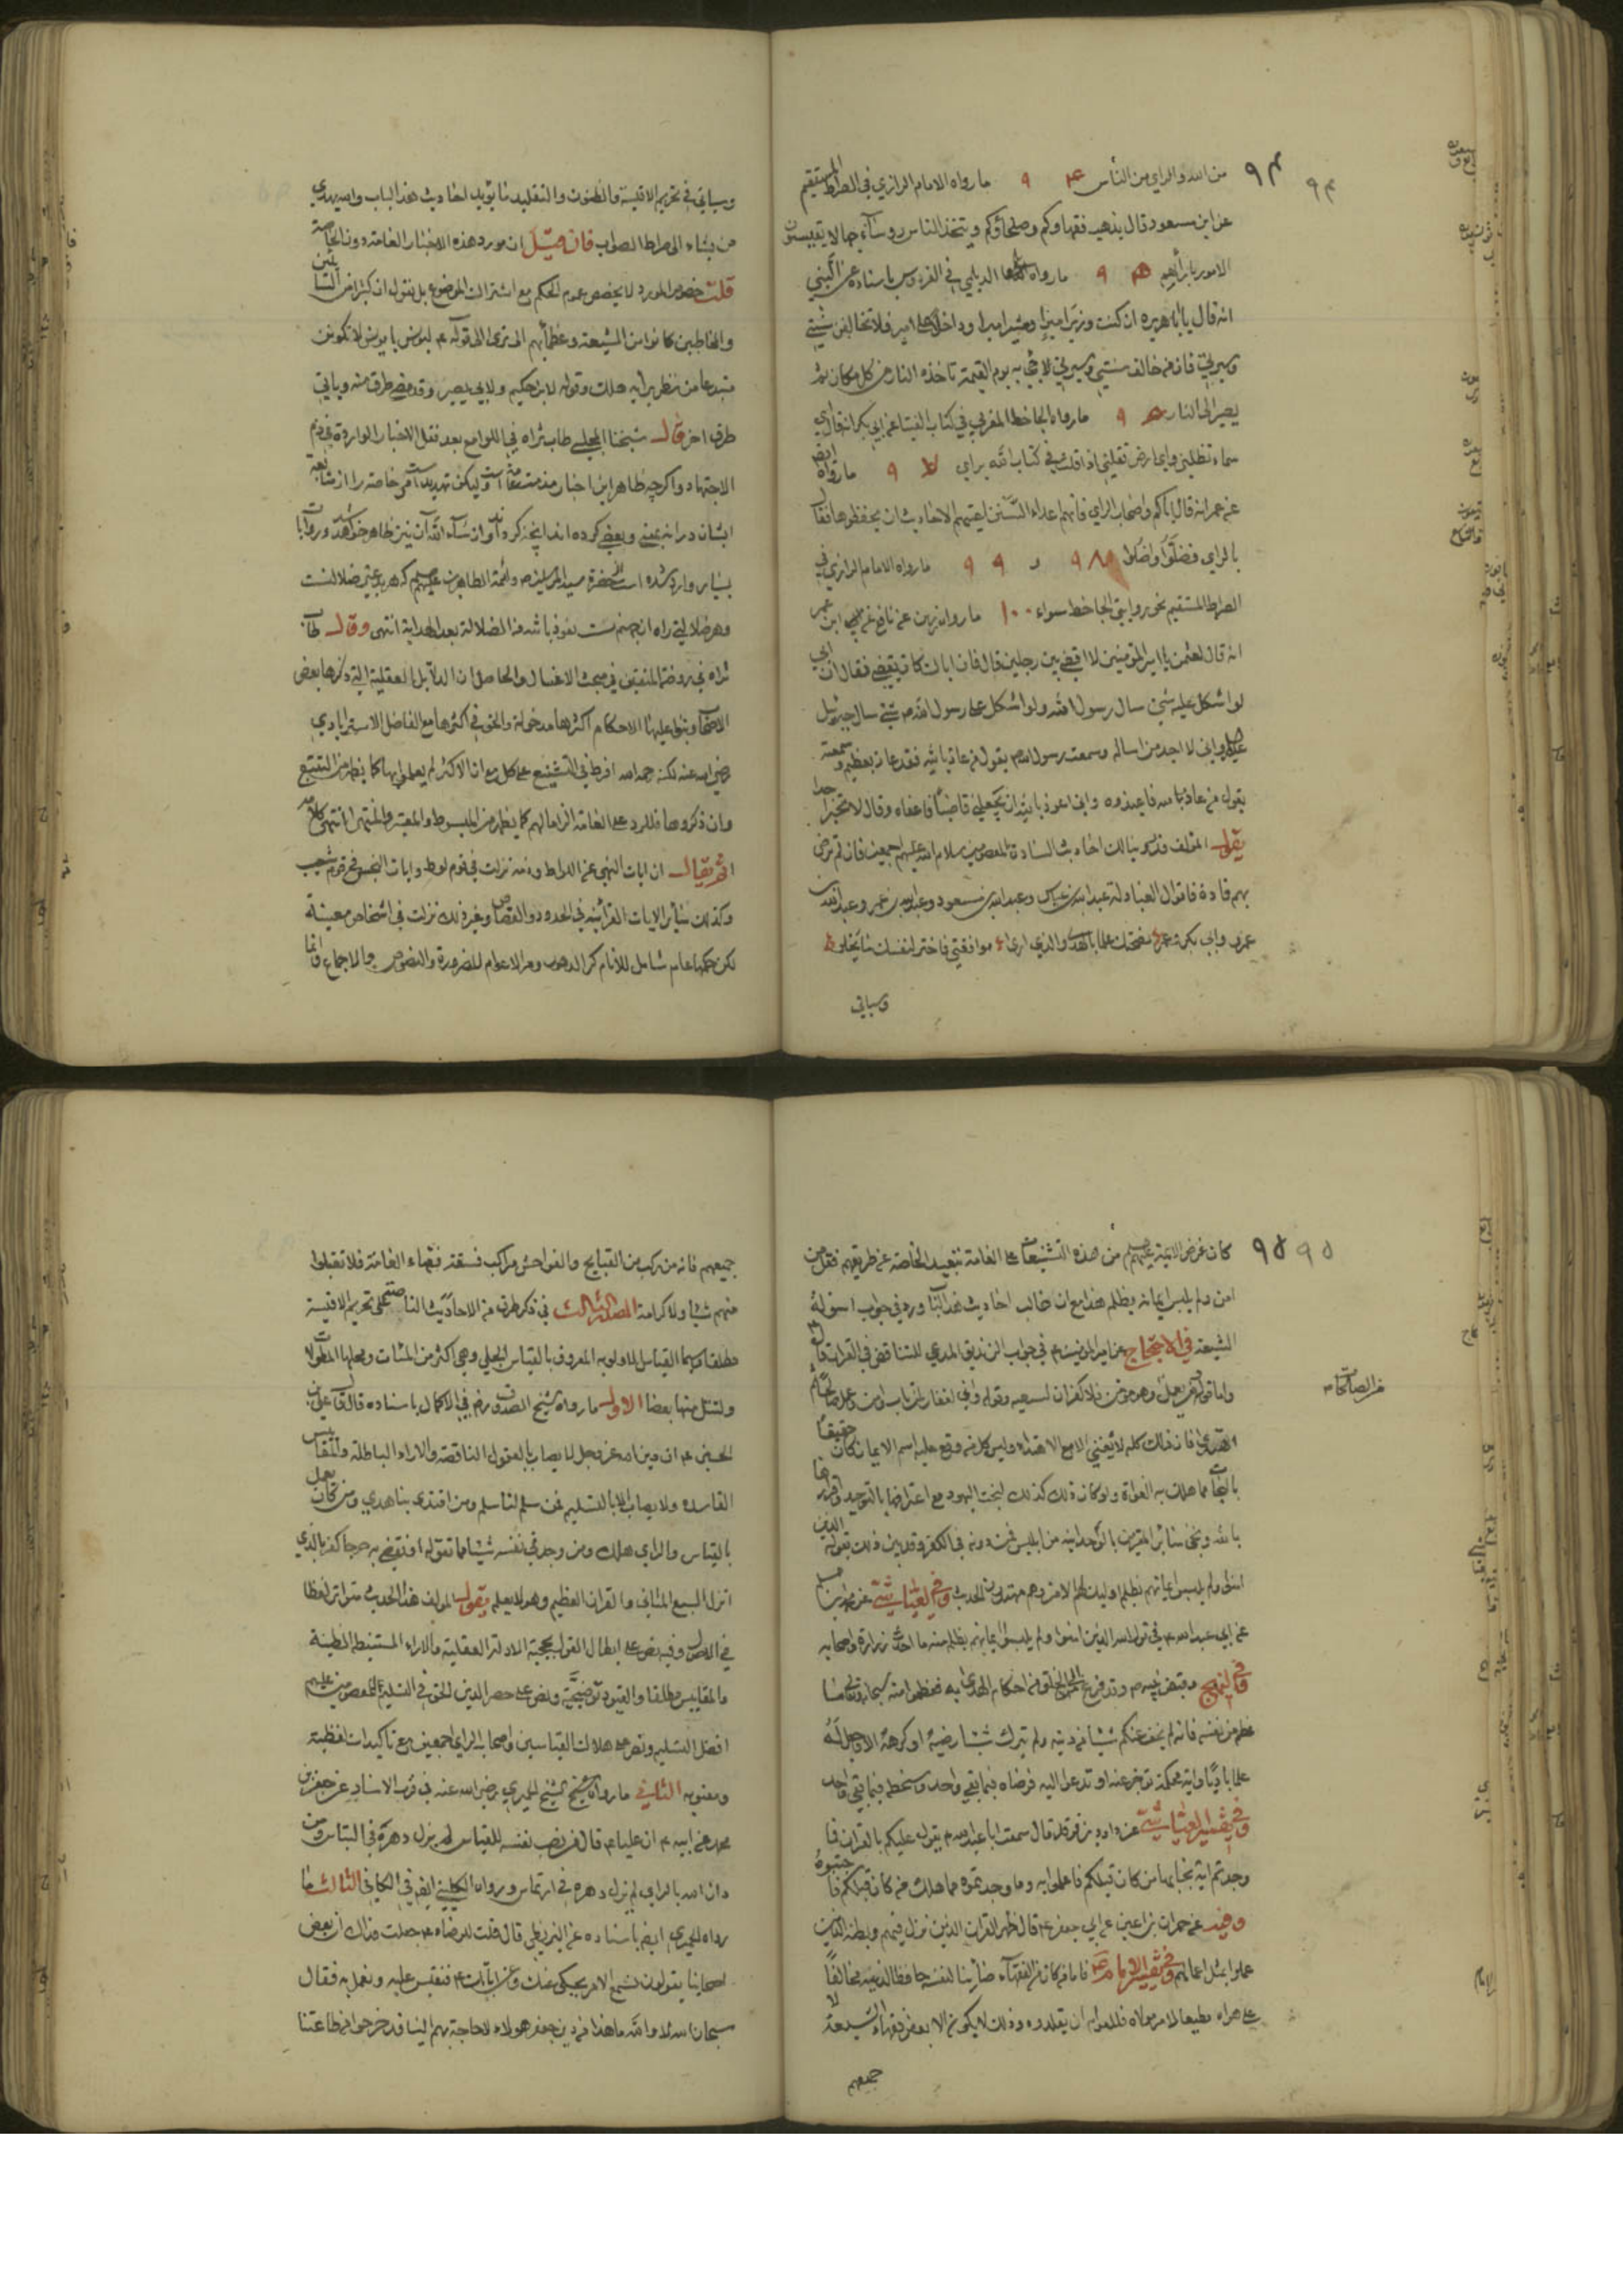 ٩٤
من الله والراي من الناس ٩ ما رواه الامام الرازي في الصراط المستقيم
عن ابن مسعود قال يذهب فقهاؤكم وصلحاؤكم ويتخذ الناس رؤساء جهالا يقيسون
الامور بارائهم ٩ ما رواه الديلمي في الفردوس باسناده عن النبي
انه قال يا ابا هريرة ان كنت وزير امير او مشير امير او داخلا على امير فلا تخالفن سنتي
وسيرتي فانه من خالف سنتي وسيرتي لا يجئ به يوم القيمة تاخذه النار من كل مكان ثم
يصير الى النار ٩ ما رواه الجاحظ المغربي في كتاب الفتيا عن ابي بكر انه قال اي
سماء تظلني واي ارض تقلني اذا قلت في كتاب الله براي ٩ ما رواه ايضا
عن عمر انه قال اياكم واصحاب الراي فانهم اعداء السنن اعيتهم الاحاديث ان يحفظوها فقالوا
بالراي فضلوا واضلوا ٩٨ و ٩٩ ما رواه الامام الرازي في
الصراط المستقيم نحو روايتي الجاحظ سواء ١٠٠ ما رواه زين عن نافع عن ابن عمر
انه قال لعثمن يا امير المؤمنين لا اقضي بين رجلين قال فان اباك كان يقضي فقال ان ابي
لو اشكل عليه شئ سال رسول الله ولو اشكل على رسول الله ص شئ سال جبرئيل
واني لا اجد من اساله وسمعت رسول الله ص يقول من عاذ بالله فقد عاذ بعظيم وسمعته
يقول من عاذ بالله فاعيذوه واني اعوذ بالله ان تجعلني قاضيا فاعفاه وقال لا تخبر احدا
يقول المؤلف احاديث السادة المعصومين سلام الله عليهم اجمعين فان لم ترض
بهم قادة فاقوال العبادلة عبد الله بن عباس وعبد الله بن مسعود وعبد الله بن عمر وعبد الله بن
عمرو وابي بكر وعمر نصحتك علما بالهدى والذي ارى موافقتي فاختر لنفسك ما يحلو
وسياتي
وسياتي في تحريم الاقيسة والظنون والتقليد ما يؤيد احاديث هذا الباب والله يهدي
من يشاء الى صراط الصواب فان قيل ان مورد هذه الاخبار العامة دون الخاصة
قلت خصوص المورد لا يخصص عموم الحكم مع اشتراك الموضوع بل نقول ان كثيرا من السائلين
والمخاطبين كانوا من الشيعة وعظمائهم الى ترى الى قوله ع ليونس يا يونس لا تكونن
مبتدعا من نظر برايه هلك وقوله لابن حكيم ولابي بصير وقد مضى طرف منه وياتي
طرف اخر قال شيخنا المجلسي طاب ثراه في اللوامع بعد نقل الاخبار الواردة في ذم
الاجتهاد واكرچه ظاهر اين اخبار مذمت عامه است وليكن تهديد است خاصه را از متابعت
ايشان
بسيار وارد شده است از حضرت سيد المرسلين ص وائمة الطاهرين عليهم كه هر بدعتي ضلالتست
وهر ضلالتي راه ان بجهنم است نعوذ بالله من الضلالة بعد الهداية انتهى وقال طاب
ثراه في روضة المتقين في مبحث الاغسال والحاصل ان الدلايل العقلية التي ذكرها بعض
الاصحاب وبنوا عليها الاحكام اكثرها مدخولة والحق في اكثرها مع الفاضل الاسترابادي
رضي الله عنه لكنه رحمه الله افرط في التشنيع على كل مع ان الاكثر لم يعملوا بها كما يظهر من التتبع
وان ذكروها فللرد على العامة الزاما لهم كما يظهر من المبسوط والمعتبر والمنتهى انتهى كلامه
اقول يقال ان ايات النهي عن اللواط وذمه نزلت في قوم لوط وايات البخس في قوم شعيب
وكذلك سائر الايات القرآنية في الحدود والقصاص وغير ذلك نزلت في اشخاص معينة
لكن حكمها عام شامل للانام كر الدهور ومر الاعوام للضرورة والنصوص والاجماع وانما
٩٥
كان غرض الائمة عليهم من هذه التشنيعات على العامة تبعيد الخاصة عن طريقهم فقل من
امن ولم يلبس ايمانه بظلم هذا مع ان غالب احاديث هذا الباب ورد في جواب اسولة
الشيعة في الاحتجاج عن امير المؤمنين ع في جواب الزنديق المدعي للتناقض في القرآن قال ع
واما قوله فمن يعمل وهو مؤمن فلا كفران لسعيه وقوله واني لغفار لمن تاب وامن وعمل صالحا ثم
من الصالحات
اهتدى فان ذلك كله لا يغني الا مع الاهتداء وليس كل من وقع عليه اسم الايمان كان حقيقا
بالنجاة مما هلك به الغواة ولو كان ذلك كذلك لنجت اليهود مع اعترافها بالتوحيد واقرارها
بالله ونجى سائر المقرين بالوحدانية من ابليس فمن دونه في الكفر وقد بين ذلك بقوله الذين
امنوا ولم يلبسوا ايمانهم بظلم اولئك لهم الامن وهم مهتدون الحديث وفي العياشي عن محمد بن مسلم
عن ابي عبد الله ع في قول الله الذين امنوا ولم يلبسوا ايمانهم بظلم منه ما احدث زرارة واصحابه
في النهج وقبض نبيه ص وقد فرغ الى الخلق من احكام الهدى به فعظموا منه سبحانه ما
عظم من نفسه فانه لم يخف عنكم شيئا من دينه ولم يترك شيئا رضيه او كرهه الا وجعل له
علما باديا واية محكمة تزجر عنه او تدعو اليه فرضاه فيما بقي واحد وسخطه فيما بقي واحد
وفي تفسير العياشي عن داود بن فرقد قال سمعت ابا عبد الله ع يقول عليكم بالقرآن فما
وجدتم اية نجا بها من كان قبلكم فاعملوا به وما وجدتموه مما هلك من كان قبلكم فاجتنبوه
وفيه عن حمران بن اعين عن ابي جعفر ع قال ظهر القرآن الذين نزل فيهم وبطنه الذين
عملوا بمثل اعمالهم وفي تفسير الامام ع فاما من كان من الفقهاء صائنا لنفسه حافظا لدينه مخالفا
على هواه مطيعا لامر مولاه فللعوام ان يقلدوه وذلك لا يكون الا بعض فقهاء الشيعة لا
جميعهم
جميعهم فانه من ركب من القبايح والفواحش مراكب فسقة فقهاء العامة فلا تقبلوا
منهم شيئا ولا كرامة المصد الثالث في ذكر طرف من الاحاديث الناصة على تحريم الاقيسة
مطلقا سيما القياس الاولوية المعروف بالقياس الجلي وهي اكثر من المئات ومحلها المطولات
ولنتل منها بعضا الاول ما رواه شيخ الصدوق رض في الاكمال باسناده قال قال علي بن
الحسين ع ان دين الله عز وجل لا يصاب بالعقول الناقصة والاراء الباطلة والمقاييس
الفاسدة ولا يصاب الا بالتسليم فمن سلم لنا سلم ومن اقتدى بنا هدي ومن كان يعمل
بالقياس والراي هلك ومن وجد في نفسه شيئا مما نقوله او نقضي به حرجا كفر بالذي
انزل السبع المثاني والقرآن العظيم وهو لا يعلم يقول المولف هذا الحديث متواتر لفظا
في الاصل وفيه نص على ابطال القول بحجية الادلة العقلية والاراء المستنبطة الظنية
والمقاييس مطلقا والقيود توضيحية ونص على حصر الدين الحق في التسليم للمعصومين عليهم
افضل التسليم ونص على هلاك القياسين واصحاب الراي اجمعين مع تاكيدات لفظية
ومعنوية الثاني ما رواه شيخ الشيخ الحميري رضي الله عنه في قرب الاسناد عن جعفر بن
محمد عن ابيه ع ان عليا ع قال من نصب نفسه للقياس لم يزل دهره في التباس ومن
دان الله بالراي لم يزل دهره في ارتماس ورواه الكليني ايضا في الكافي الثالث ما
رواه الحميري ايضا باسناده عن البزنطي قال قلت للرضاء ع جعلت فداك ان بعض
اصحابنا يقولون نسمع الامر يحكى عنك وعن ابائك ع فنقيس عليه ونعمل به فقال
سبحان الله لا والله ما هذا من دين جعفر هؤلاء لا حاجة بهم الينا قد خرجوا من طاعتنا